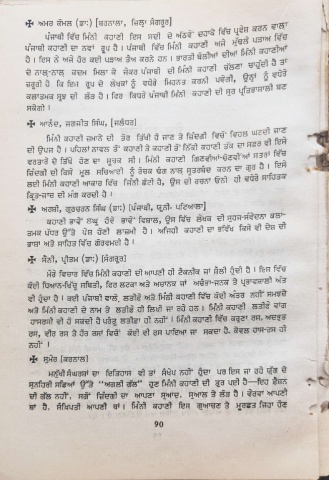 ✠ ਅਮਰ ਕੋਮਲ (ਡਾ:) [ਬਰਨਾਲਾ, ਜ਼ਿਲ੍ਹਾ ਸੰਗਰੂਰ]
ਪੰਜਾਬੀ ਵਿੱਚ ਮਿੰਨੀ ਕਹਾਣੀ ਇਸ ਸਦੀ ਦੇ ਅੱਠਵੇਂ ਦਹਾਕੇ ਵਿੱਚ ਪ੍ਰਵੇਸ਼ ਕਰਨ ਵਾਲਾ
ਪੰਜਾਬੀ ਕਹਾਣੀ ਦਾ ਨਵਾਂ ਰੂਪ ਹੈ। ਪੰਜਾਬੀ ਵਿੱਚ ਮਿੰਨੀ ਕਹਾਣੀ ਅਜੇ ਮੁੱਢਲੇ ਪੜਾਅ ਵਿੱਚ
ਹੈ। ਇਸ ਨੇ ਅਜੇ ਹੋਰ ਕਈ ਪੜਾਅ ਤੈਅ ਕਰਨੇ ਹਨ। ਭਾਰਤੀ ਬੋਲੀਆਂ ਦੀਆਂ ਮਿੰਨੀ ਕਹਾਣੀਆਂ
ਦੇ ਨਾਲ-ਨਾਲ ਕਦਮ ਮਿਲਾ ਕੇ ਜੇਕਰ ਪੰਜਾਬੀ ਦੀ ਮਿੰਨੀ ਕਹਾਣੀ ਚੱਲਣਾ ਚਾਹੁੰਦੀ ਹੈ ਤਾਂ
ਜ਼ਰੂਰੀ ਹੈ ਕਿ ਇਸ ਰੂਪ ਦੇ ਲੇਖਕਾਂ ਨੂੰ ਵਧੇਰੇ ਮਿਹਨਤ ਕਰਨੀ ਪਵੇਗੀ, ਉਨ੍ਹਾਂ ਨੂੰ ਵਧੇਰੇ
ਕਲਾਤਮਕ ਸੂਝ ਦੀ ਲੋੜ ਹੈ। ਫਿਰ ਕਿਧਰੇ ਪੰਜਾਬੀ ਮਿੰਨੀ ਕਹਾਣੀ ਦੀ ਸੁਰ ਪ੍ਰਤਿਭਾਸ਼ਾਲੀ ਬਣ
ਸਕੇਗੀ।
✠ ਆਨੰਦ, ਜਗਜੀਤ ਸਿੰਘ, [ਜਲੰਧਰ]
ਮਿੰਨੀ ਕਹਾਣੀ ਜ਼ਮਾਨੇ ਦੀ ਤੋਰ ਤਿੱਖੀ ਹੋ ਜਾਣ ਤੇ ਜ਼ਿੰਦਗੀ ਵਿਚੋਂ ਵਿਹਲ ਘਟਦੀ ਜਾਣ
ਦੀ ਉਪਜ ਹੈ। ਪਹਿਲਾਂ ਨਾਵਲ ਤੋਂ ਕਹਾਣੀ ਤੇ ਕਹਾਣੀ ਤੋਂ ਨਿੱਕੀ ਕਹਾਣੀ ਤੱਕ ਦਾ ਸਫ਼ਰ ਵੀ ਇਸੇ
ਵਰਤਾਰੇ ਦੇ ਤਿੱਖੇ ਹੋਣ ਦਾ ਸੂਚਕ ਸੀ। ਮਿੰਨੀ ਕਹਾਣੀ ਗਿਣਵੀਆਂ-ਚੋਣਵੀਆਂ ਸਤਰਾਂ ਵਿੱਚ
ਜ਼ਿੰਦਗੀ ਦੀ ਕਿਸੇ ਮੂਲ ਸਚਿਆਈ ਨੂੰ ਰੌਚਕ ਢੰਗ ਨਾਲ ਸੂਤਰਬੱਧ ਕਰਨ ਦਾ ਗੁਰ ਹੈ। ਇਸੇ
ਲਈ ਮਿੰਨੀ ਕਹਾਣੀ ਆਕਾਰ ਵਿੱਚ ਜਿੰਨੀ ਛੋਟੀ ਹੈ, ਉਸ ਦੀ ਰਚਨਾ ਓਨੀ ਹੀ ਵਧੇਰੇ ਸਾਹਿਤਕ
ਕ੍ਰਿਤ-ਜਾਚ ਦੀ ਮੰਗ ਕਰਦੀ ਹੈ।
✠ ਅਰਸ਼ੀ, ਗੁਰਚਰਨ ਸਿੰਘ (ਡਾ:) [ਪੰਜਾਬੀ, ਯੂਨੀ: ਪਟਿਆਲਾ]
ਕਹਾਣੀ ਭਾਵੇਂ ਲਘੂ ਹੋਵੇ ਭਾਵੇਂ ਵਿਸ਼ਾਲ, ਉਸ ਵਿੱਚ ਲੇਖਕ ਦੀ ਸੁਹਜ-ਸੰਵੇਦਨਾ ਕਲਾ-
ਤਮਕ ਪੱਧਰ ਉੱਤੇ ਪੇਸ਼ ਹੋਣੀ ਲਾਜ਼ਮੀ ਹੈ। ਅਜਿਹੀ ਕਹਾਣੀ ਦਾ ਭਵਿੱਖ ਕਿਸੇ ਵੀ ਦੇਸ਼ ਦੀ
ਭਾਸ਼ਾ ਅਤੇ ਸਾਹਿਤ ਵਿੱਚ ਗੌਰਵਮਈ ਹੈ।
✠ ਸੈਨੀ, ਪ੍ਰੀਤਮ (ਡਾ:) [ਸੰਗਰੂਰ]
ਮੇਰੇ ਵਿਚਾਰ ਵਿੱਚ ਮਿੰਨੀ ਕਹਾਣੀ ਦੀ ਆਪਣੀ ਹੀ ਟੈਕਨੀਕ ਜਾਂ ਸ਼ੈਲੀ ਹੁੰਦੀ ਹੈ। ਇਸ ਵਿੱਚ
ਕੋਈ ਧਿਆਨ-ਖਿੱਚੂ ਸਥਿਤੀ, ਫਿਰ ਲਟਕਾ ਅਤੇ ਅਚਾਨਕ ਜਾਂ ਅਚੰਭਾ-ਜਨਕ ਤੇ ਪ੍ਰਭਾਵਸ਼ਾਲੀ ਅੰਤ
ਵੀ ਹੁੰਦਾ ਹੈ। ਕਈ ਪੰਜਾਬੀ ਵਾਲੇ, ਲਤੀਫ਼ੇ ਅਤੇ ਮਿੰਨੀ ਕਹਾਣੀ ਵਿੱਚ ਕੋਈ ਅੰਤਰ ਨਹੀਂ ਸਮਝਦੇ
ਅਤੇ ਮਿੰਨੀ ਕਹਾਣੀ ਦੇ ਨਾਮ ਤੇ ਲਤੀਫ਼ੇ ਹੀ ਲਿਖੀ ਜਾ ਰਹੇ ਹਨ। ਮਿੰਨੀ ਕਹਾਣੀ ਲਤੀਫ਼ੇ ਵਾਂਗ
ਹਾਸਰਸੀ ਵੀ ਹੋ ਸਕਦੀ ਹੈ ਪਰੰਤੂ ਲਤੀਫ਼ਾ ਹੀ ਨਹੀਂ। ਮਿੰਨੀ ਕਹਾਣੀ ਵਿੱਚ ਕਰੁਣਾ ਰਸ, ਅਦਭੁਤ
ਰਸ, ਵੀਰ ਰਸ ਤੇ ਹੋਰ ਰਸਾਂ ਵਿਚੋਂ ਕੋਈ ਵੀ ਰਸ ਪਾਇਆ ਜਾ ਸਕਦਾ ਹੈ. ਕੇਵਲ ਹਾਸ-ਰਸ ਹੀ
ਨਹੀਂ।
✠ ਸੁਮੇਰ [ਕਰਨਾਲ]
ਮਨੁੱਖੀ ਸੰਘਰਸ਼ਾਂ ਦਾ ਇਤਿਹਾਸ ਵੀ ਤਾਂ ਸੰਖੇਪ ਨਹੀਂ ਹੁੰਦਾ ਪਰ ਇਸ ਜਾ ਰਹੇ ਯੁੱਗ ਦੇ
ਸੁਨਹਿਰੀ ਸਫ਼ਿਆਂ ਉੱਤੇ "ਅਗਲੀ ਗੱਲ" ਹੁਣ ਮਿੰਨੀ ਕਹਾਣੀ ਦੀ ਤੁਰ ਪਈ ਹੈ—ਇਹ ਫ਼ੈਸ਼ਨ
ਦੀ ਗੱਲ ਨਹੀਂ, ਸਗੋਂ ਜ਼ਿੰਦਗੀ ਦਾ ਆਪਣਾ ਸੁਆਦ, ਸੁਆਲ ਤੇ ਲੋੜ ਹੈ। ਵੇਰਵਾ ਆਪਣੀ
ਥਾਂ ਹੈ, ਸੰਖਿਪਤੀ ਆਪਣੀ ਥਾਂ। ਮਿੰਨੀ ਕਹਾਣੀ ਇਸ ਗੁਆਚਣ ਤੇ ਮੂਰਛਤ ਜਿਹਾ ਹੋਣ
90